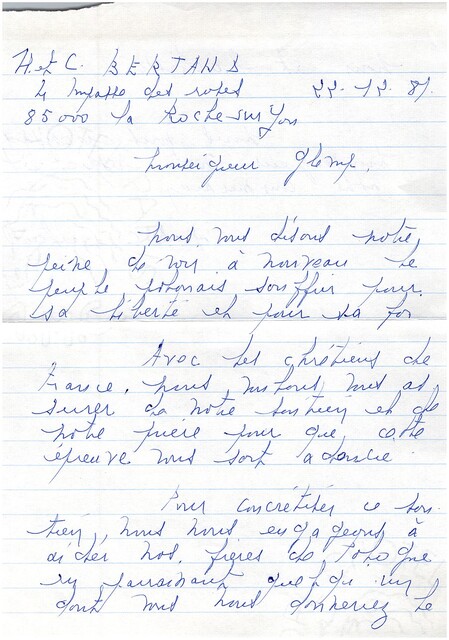 H. et C. BERTAND
4 Impasse des roses 22-12-81
85000 La Roche-sur-Yon
Monseigneur Glemp,
Nous vous disons notre
peine de voir à nouveau le
peuple polonais souffrir pour
sa liberté et pour sa foi
Avec les chrétiens de
France, nous voulons vous as
surer de notre soutien et de
notre prière pour que cette
épreuve vous soit adoucie.
Pour concrétiser ce sou
tien, nous nous engageons à
aider nos frères de Pologne
en parrainant quelqu'un
dont vous nous donneriez le